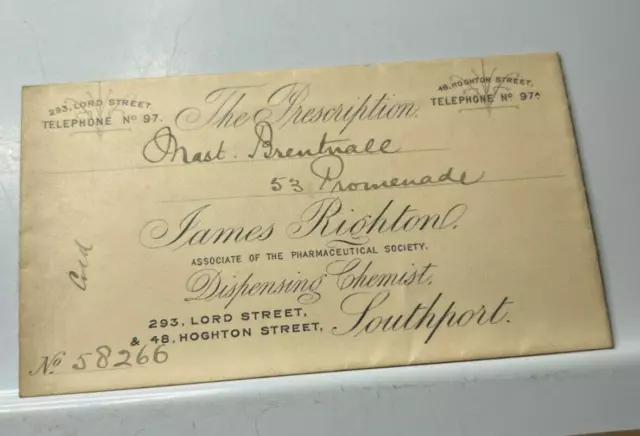 293, LORD STREET,
TELEPHONE No 97.
48, HOGHTON STREET,
TELEPHONE No 97A
The Prescription.
Mast. Brentnall
53 Promenade
James Righton.
ASSOCIATE OF THE PHARMACEUTICAL SOCIETY.
Dispensing Chemist,
293, LORD STREET,
& 48, HOGHTON STREET,
Southport.
No 58266